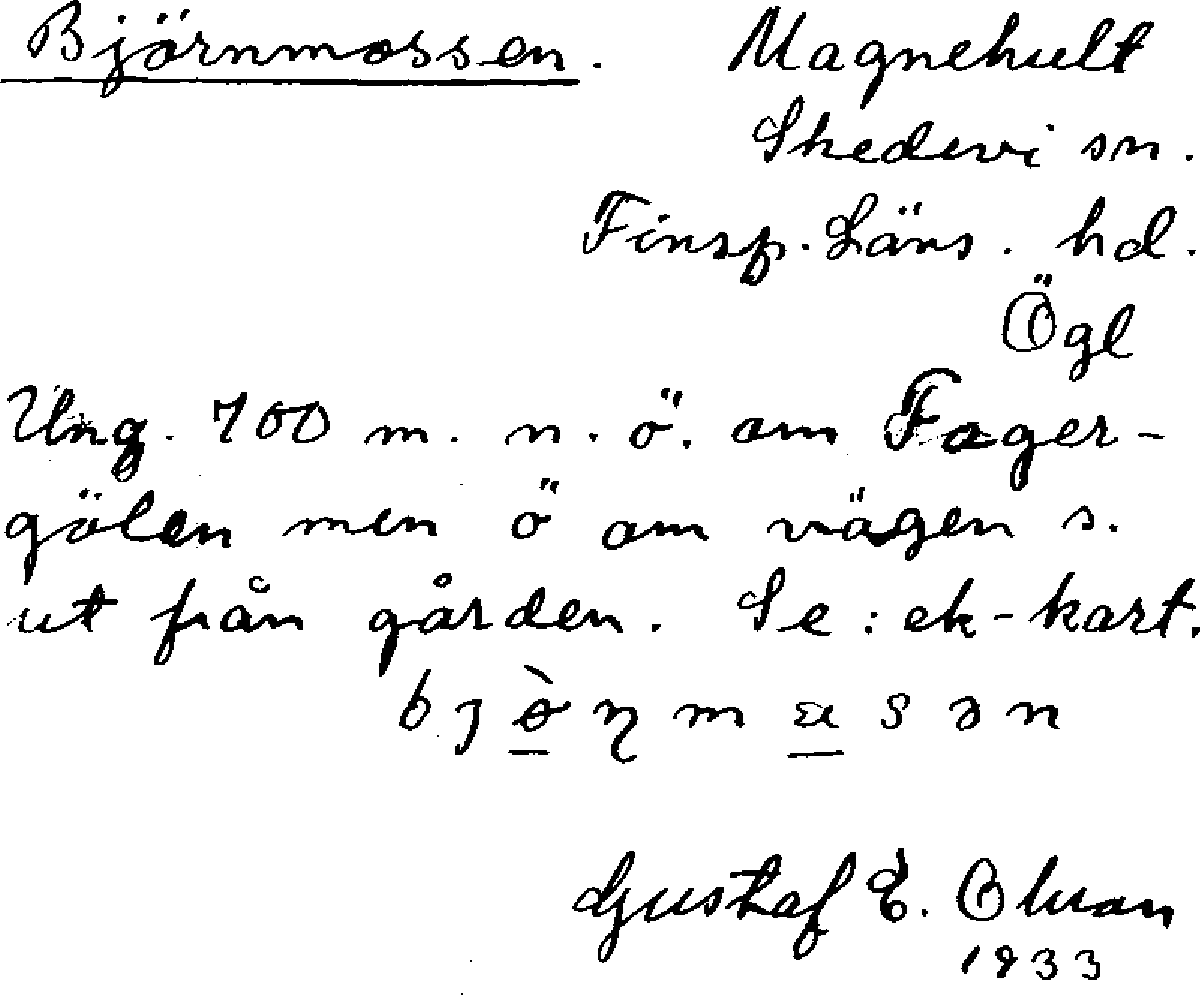 Björnmossen. Magnehult
Skedevi sn.
Finsp. Läns. hd.
Ögl
Ung. 700 m. n. ö. om Fager-
gölen men ö om vägen s.
ut från gården. Se: ek-kart.
Gustaf E.
1933